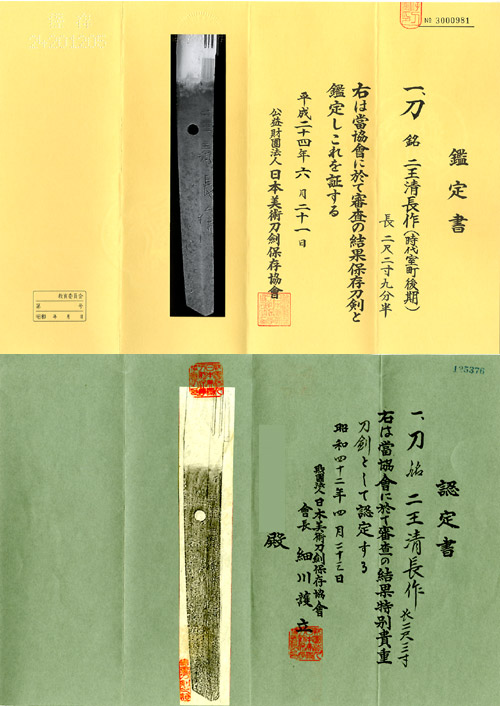 No 3000981
鑑定書
一、刀 銘 二王清長作(時代室町後期)
長 二尺二寸九分半
右は當協會に於て審査の結果保存刀剣と
鑑定しこれを証する
平成二十四年六月二十一日
公益財團法人 日本美術刀剣保存協會
教育委員会
第 号
昭和 年 月 日
125376
認定書
一、刀 銘 二王清長作 長二尺三寸
右は當協會に於て審査の結果特別貴重
刀劍として認定する
昭和四十二年四月二十三日
財團法人 日本美術刀劍保存協會
會長 細川護立
殿